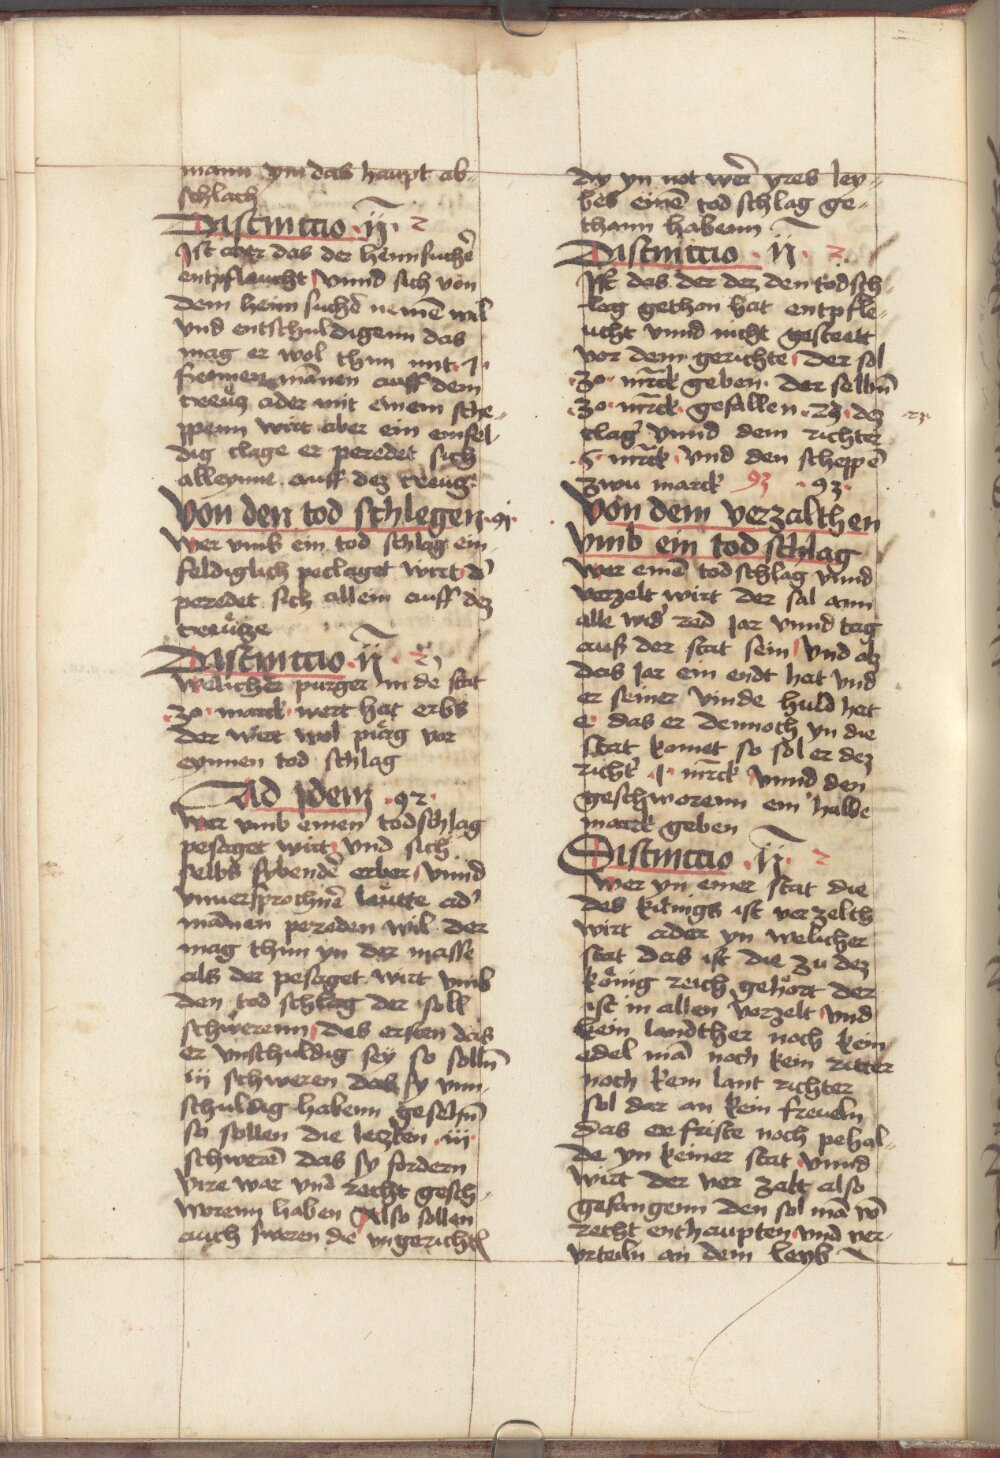 mann ym das haupt ab-
schlach
Distinctio ij 2
Ist aber das der heimsuchẽ
entpfleucht vnnd sich von
dem heim suchẽ nemẽ wil
vnd entschuldigenn das
mag er wol thun mit
fromen mãnen auff dem
creücz ader mit einem sche-
ppenn wirt aber ein einfel-
dig clage er peredet sich
alleynne auff dez creucz
Von den tod schlegen 91
Wer vmb ein tod schlag ein
feldiglich peclaget wirt d'
peredet sich allein auff dez
creücze
Distinctio ij 2
Welicher purger in dẽ stat
30 marck wert hat erbs
der wirt wol pürg vor
eynnen tod schlag
Ad Idem 92
Wer vmb einen todschlag
pesaget wirt vnd sich
selbs sybendẽ erber vnnd
vnuersprochnẽ leütte ad'
mãnnen pereden wil der
mag thun yn der masse
als der pesaget wirt vmb
den tod schlag der soll
schwerenn des ersten das
er vnschuldig sey so sollñ
iij schweren das sy vnn
schuldig habenn gesehñ
so sollen die leczten iij
schwerẽ das sy fordern
vire war vnd recht gesch-
worenn haben Also sollen
auch sweren dẽ vngericht
dy yn not wer yres ley-
bes einẽ tod schlag ge-
thann habenn
Distinctio ij 2
Ist das der dez den todsch-
lag gethon hat entpfle-
ucht vnnd nicht gesteett
vor dem gerichte der sol
30 mrck geben der selbñ
30 mrck gefallen 23 dez
clag' vnnd dem richter
5 mrck vnd den scheppẽ
zwu marck 93 93
Von dem verzalthen
vmb ein tod schlag
Wer einẽ todschlag vnnd
verzelt wirt der sal ann
alle wid' red jar vnnd tag
auß der stat sein vnd alz
das jar ein endt hat vnd
er seiner vinde huld hat
e das er dennoch yn die
stat komet so sol er dez
richt' j mrck vnnd den
geschworenn ein halbe
marck geben
Distinctio ij 2
Wer yn einer stat die
des künigs ist verzelth
wirt ader yn welicher
stat das ist die zu dez
künig reich gehört der
ist in allen vorzelt vnd
kein landther noch kein
edel mã noch kein ritter
noch kein lant richter
sol dar an kein freueln
das er friste noch pehal-
de yn keiner stat vnnd
wirt der ver zalt also
gefangenn den sol mã võ
recht enthaupten vnd ver-
vrteiln an dem leyb